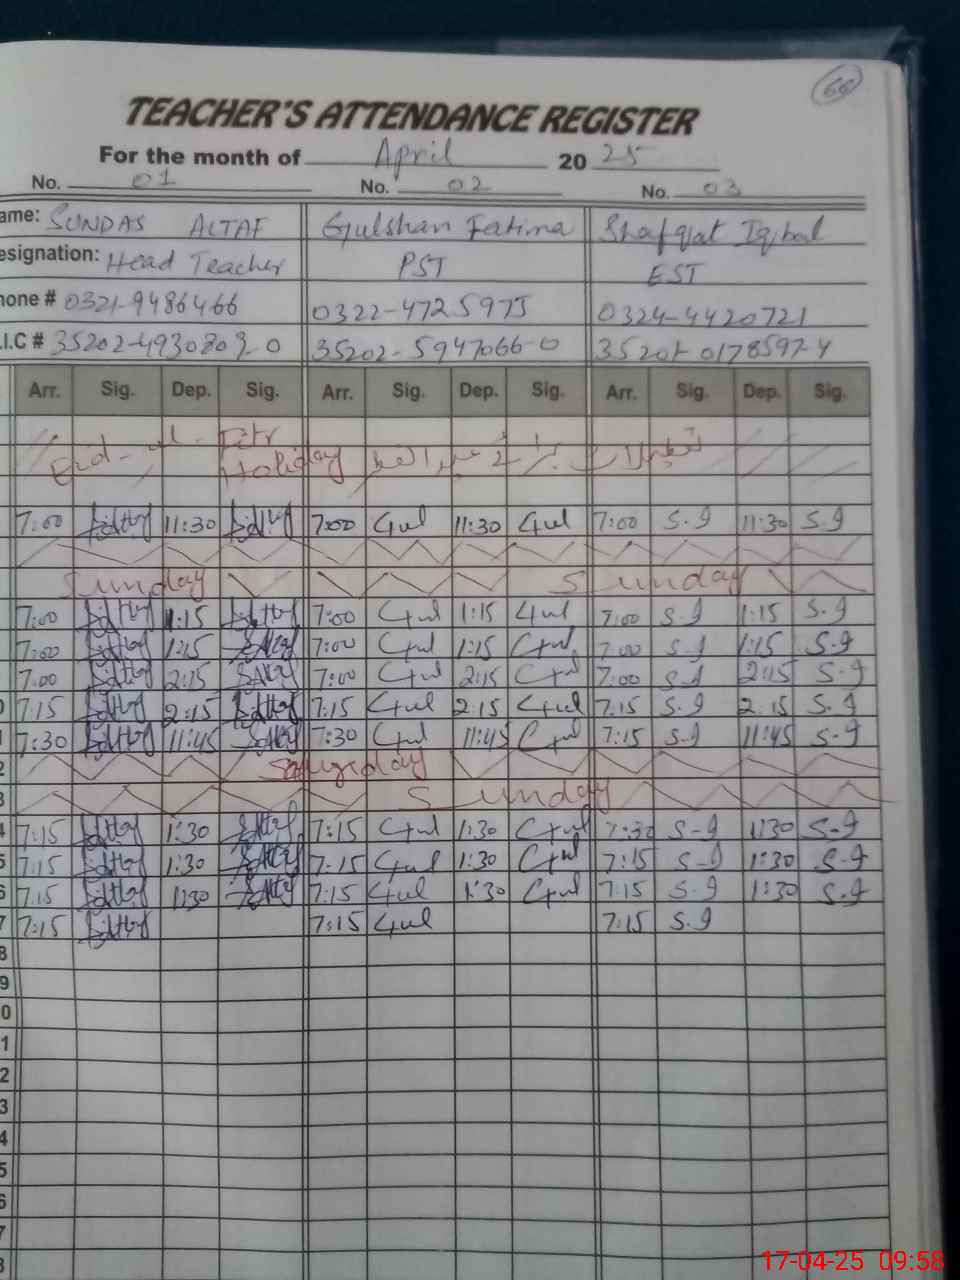 66
TEACHER'S ATTENDANCE REGISTER
For the month of April 20 25
No. 01 No. 02 No. 03
ame: SUNDAS ALTAF Gulshan Fatima Shafqat Iqbal
esignation: Head Teacher PST EST
hone # 0321-9486466 0322-4725975 0324-4420721
.I.C # 35202-4930809-0 35202-5947066-0 35201-0178597-4
Arr. Sig. Dep. Sig. Arr. Sig. Dep. Sig. Arr. Sig. Dep. Sig.
Eid-ul-Fitr
Holiday تعطیلات برائے عید الفطر
7:00 11:30 7:00 Gul 11:30 Gul 7:00 S.I 11:30 S.I
Sunday Sunday
7:00 1:15 7:00 Gul 1:15 Gul 7:00 S.I 1:15 S.I
7:00 1:15 7:00 Gul 1:15 Gul 7:00 S.I 1:15 S.I
7:00 2:15 7:00 Gul 2:15 Gul 7:00 S.I 2:15 S.I
0 7:15 2:15 7:15 Gul 2.15 Gul 7.15 S.I 2.15 S.I
1 7:30 11:45 7:30 Gul 11:45 Gul 7:15 S.I 11:45 S.I
2 Saturday
3 Sunday
4 7:15 1:30 7:15 Gul 1:30 Gul 7:30 S-I 1:30 S-I
5 7:15 1:30 7:15 Gul 1:30 Gul 7:15 S-I 1:30 S.I
6 7.15 1:30 7:15 Gul 1:30 Gul 7:15 S.I 1:30 S.I
7 7:15 7:15 Gul 7:15 S.I
8
9
0
1
2
3
4
5
6
7
8
17-04-25 09:58